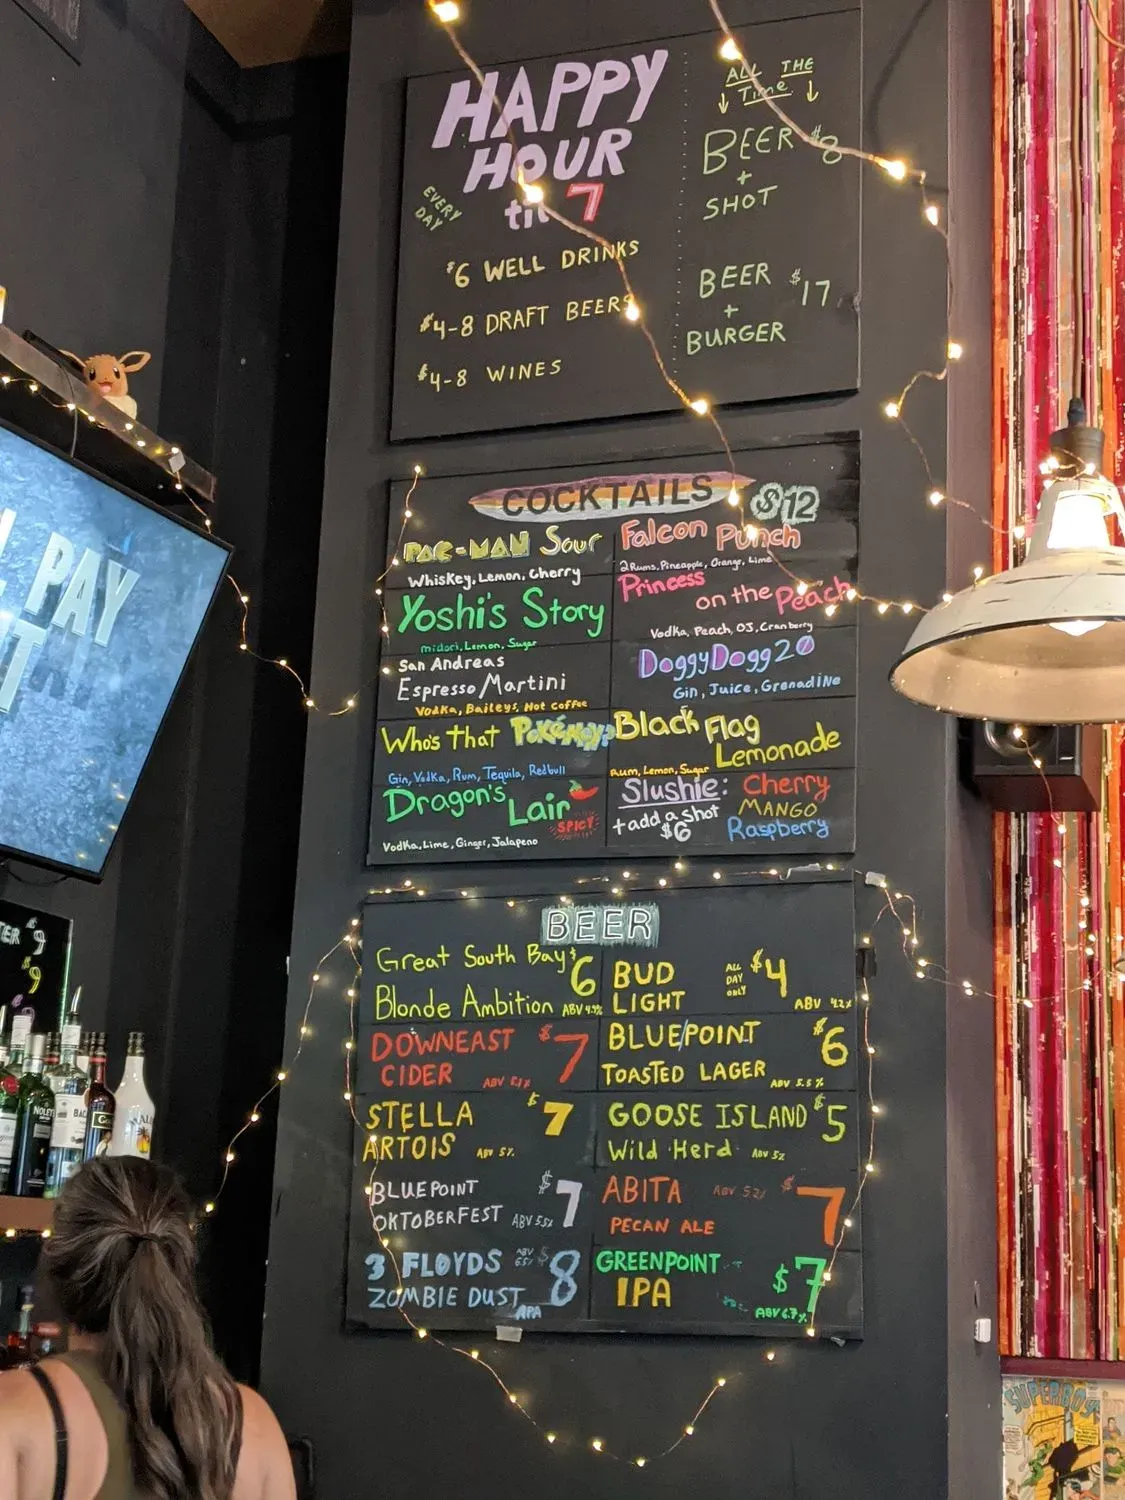 HAPPY
HOUR
til 7
EVERY
DAY
$6 WELL DRINKS
$4-8 DRAFT BEERS
$4-8 WINES
ALL THE
Time
BEER $8
+
SHOT
BEER $17
+
BURGER
COCKTAILS $12
PAC-MAN Sour
Whiskey, Lemon, Cherry
Yoshi's Story
midori, Lemon, Sugar
San Andreas
Espresso Martini
Vodka, Baileys, Hot Coffee
Who's that Pokémon?
Gin, Vodka, Rum, Tequila, Redbull
Dragon's Lair
SPICY
Vodka, Lime, Ginger, Jalapeno
Falcon Punch
2 Rums, Pineapple, Orange, Lime
Princess
on the Peach
Vodka, Peach, OJ, Cranberry
DoggyDogg20
Gin, Juice, Grenadine
Black Flag
Lemonade
Rum, Lemon, Sugar
Slushie: Cherry
MANGO
Raspberry
+ add a shot
$6
BEER
Great South Bay $6
Blonde Ambition ABV 4.9%
DOWNEAST $7
CIDER ABV 5.1%
STELLA $7
ARTOIS ABV 5%
BLUEPOINT $7
OKTOBERFEST ABV 5.5%
3 FLOYDS ABV 6.5% $8
ZOMBIE DUST APA
BUD ALL DAY ONLY $4
LIGHT ABV 4.2%
BLUEPOINT $6
TOASTED LAGER ABV 5.5%
GOOSE ISLAND $5
Wild Herd ABV 5%
ABITA ABV 5.2% $7
PECAN ALE
GREENPOINT $7
IPA ABV 6.7%
PAY
$9
$9
SUPERBOY